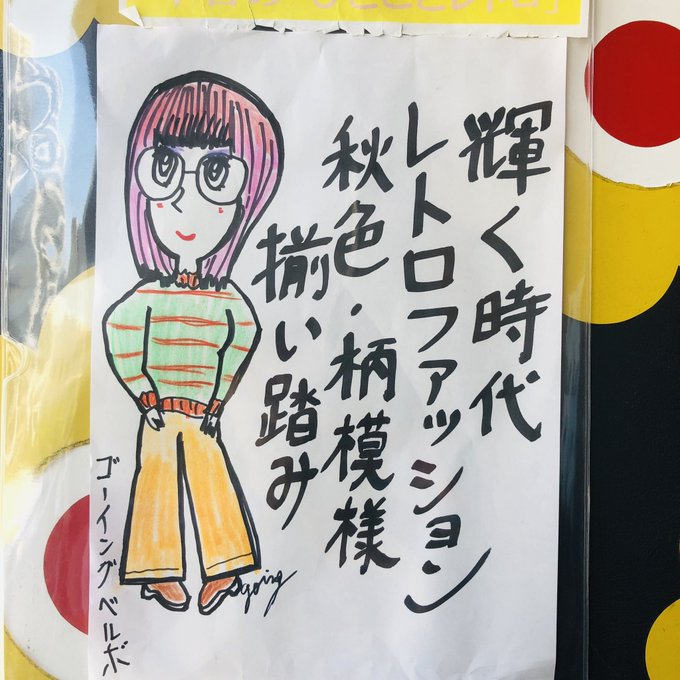 輝く時代
レトロファッション
秋色・柄模様
揃い踏み
going
ゴーイングベルボ